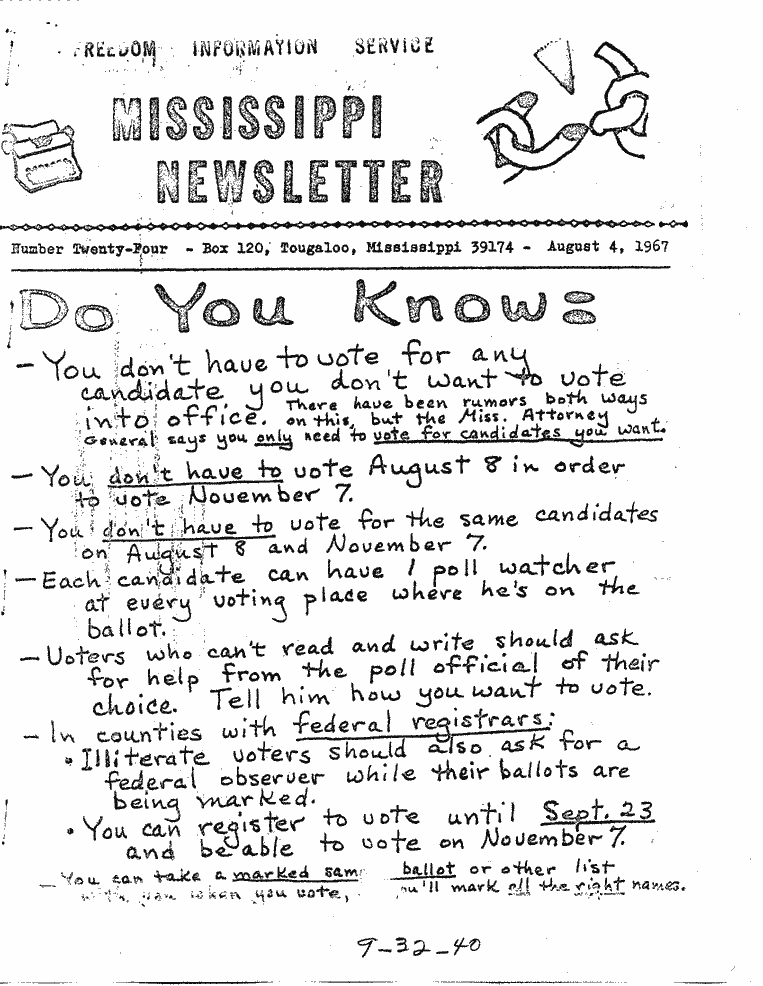 FREEDOM INFORMATION SERVICE
MISSISSIPPI
NEWSLETTER
Number Twenty-Four - Box 120, Tougaloo, Mississippi 39174 - August 4, 1967
Do You Know:
- You don't have to vote for any
candidate you don't want to vote
into office. There have been rumors both ways
on this, but the Miss. Attorney
General says you only need to vote for candidates you want.
- You don't have to vote August 8 in order
to vote November 7.
- You don't have to vote for the same candidates
on August 8 and November 7.
- Each candidate can have 1 poll watcher
at every voting place where he's on the
ballot.
- Voters who can't read and write should ask
for help from the poll official of their
choice. Tell him how you want to vote.
- In counties with federal registrars:
• Illiterate voters should also ask for a
federal observer while their ballots are
being marked.
• You can register to vote until Sept. 23
and be able to vote on November 7.
- You can take a marked sam ballot or other list
with you when you vote, ou'll mark all the right names.
9-32-40